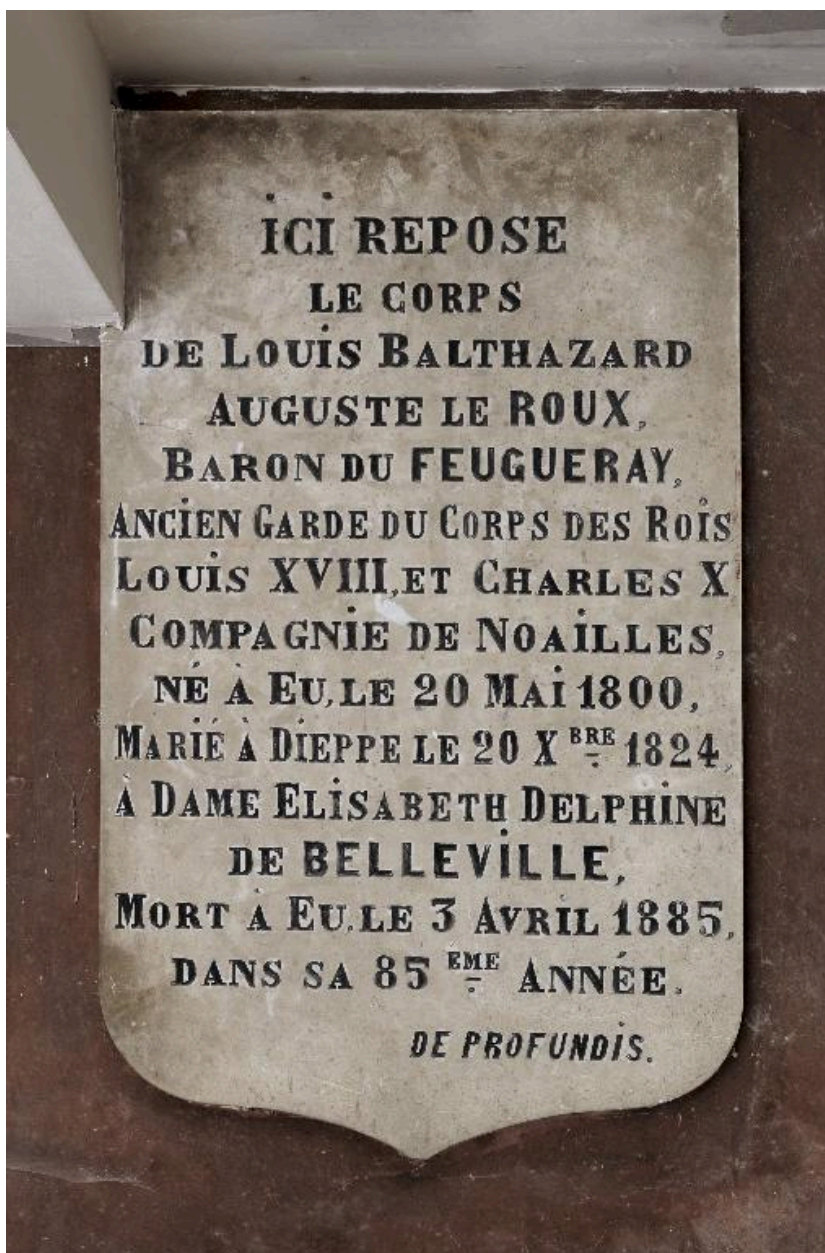 ICI REPOSE
LE CORPS
DE LOUIS BALTHAZARD
AUGUSTE LE ROUX,
BARON DU FEUGUERAY,
ANCIEN GARDE DU CORPS DES ROIS
LOUIS XVIII, ET CHARLES X
COMPAGNIE DE NOAILLES,
NÉ À EU, LE 20 MAI 1800,
MARIÉ À DIEPPE LE 20 X BRE 1824,
À DAME ELISABETH DELPHINE
DE BELLEVILLE,
MORT À EU, LE 3 AVRIL 1885,
DANS SA 85 EME ANNÉE.
DE PROFUNDIS.